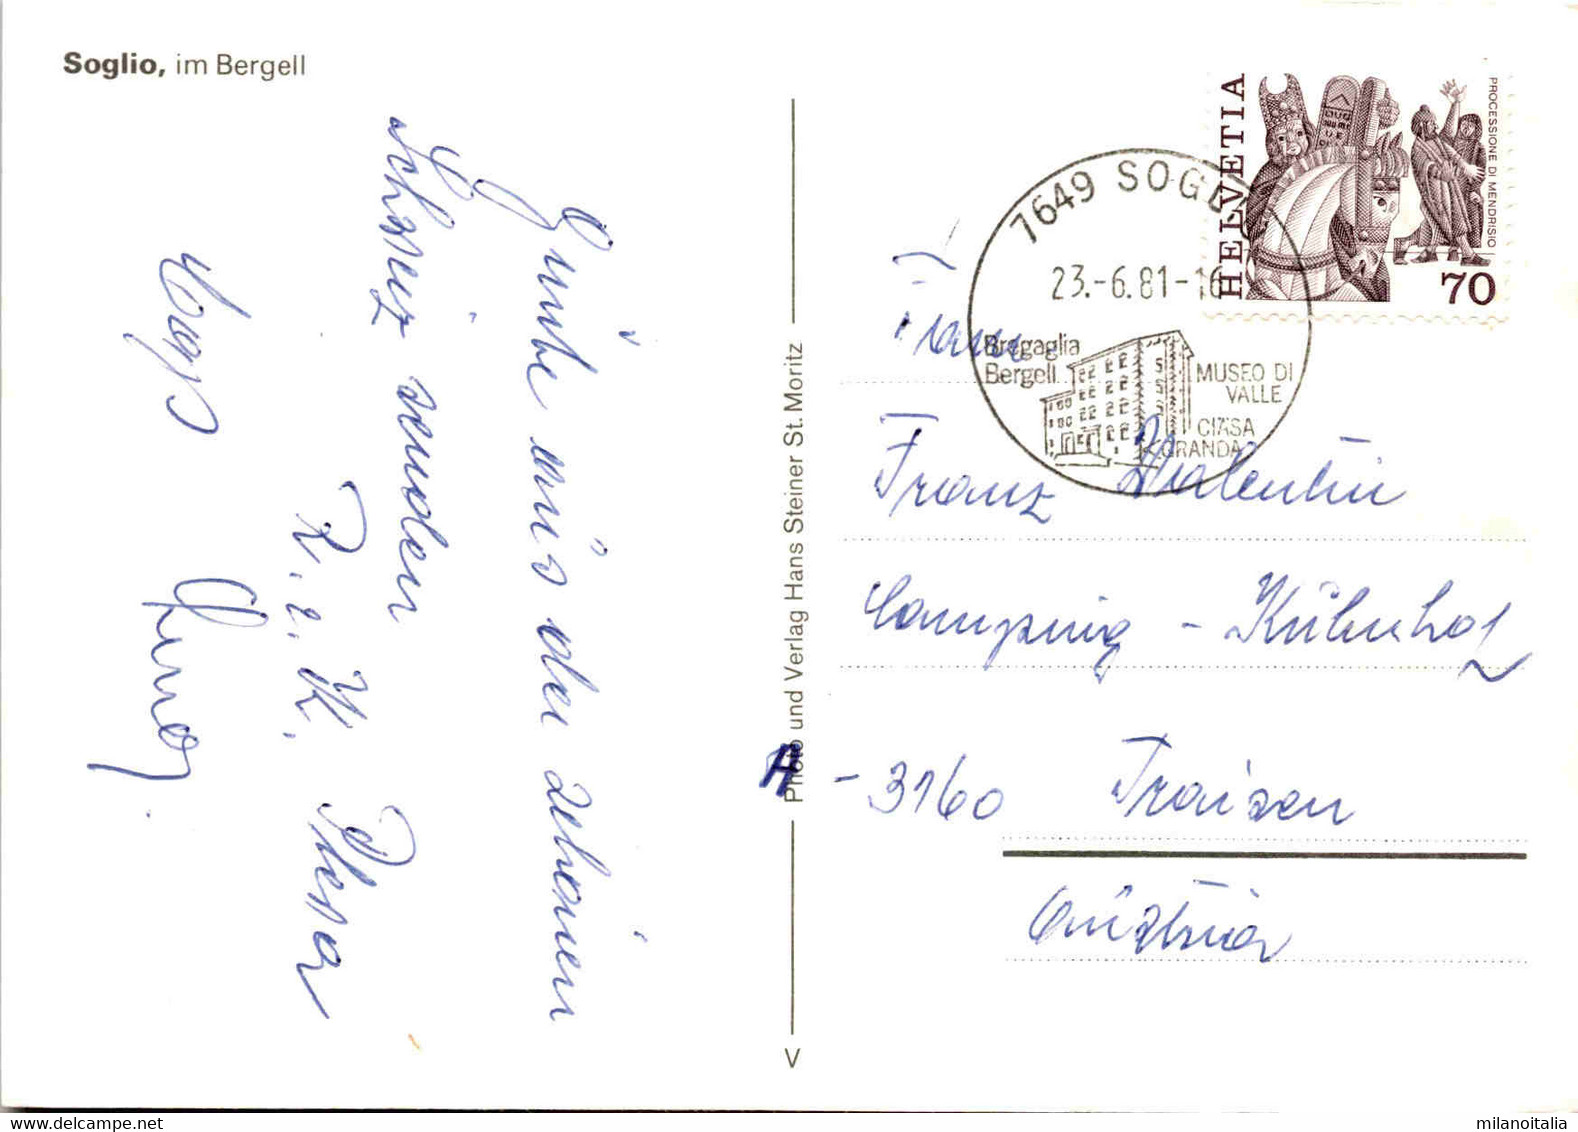 Soglio, im Bergell
Grüße aus der schönen
Schweiz senden
R. u. K.
Photo und Verlag Hans Steiner St. Moritz
V
HELVETIA
PROCESSIONE DI MENDRISIO
70
7649 SOGLIO
23.-6.81-16
Bregaglia
Bergell
MUSEO DI
VALLE
CIÄSA
GRANDA
Fam.
Franz Valentin
Camping - Kühnhof
A - 3160 Traisen
Austria
milanoitalia